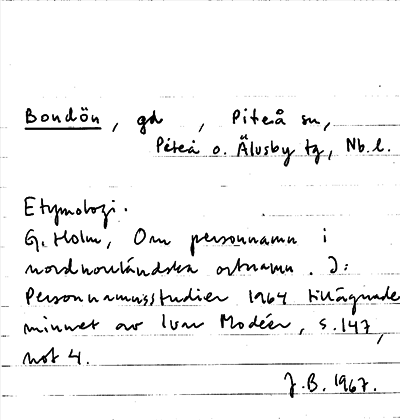 Bondön, gd , Piteå sn,
Piteå o. Älvsby tg, Nb. l.
Etymologi.
G. Holm, Om personnamn i
nordnorrländska ortnamn. I:
Personnamnsstudier 1964 tillägnade
minnet av Ivar Modéer, s. 147,
not 4.
J.B. 1967.